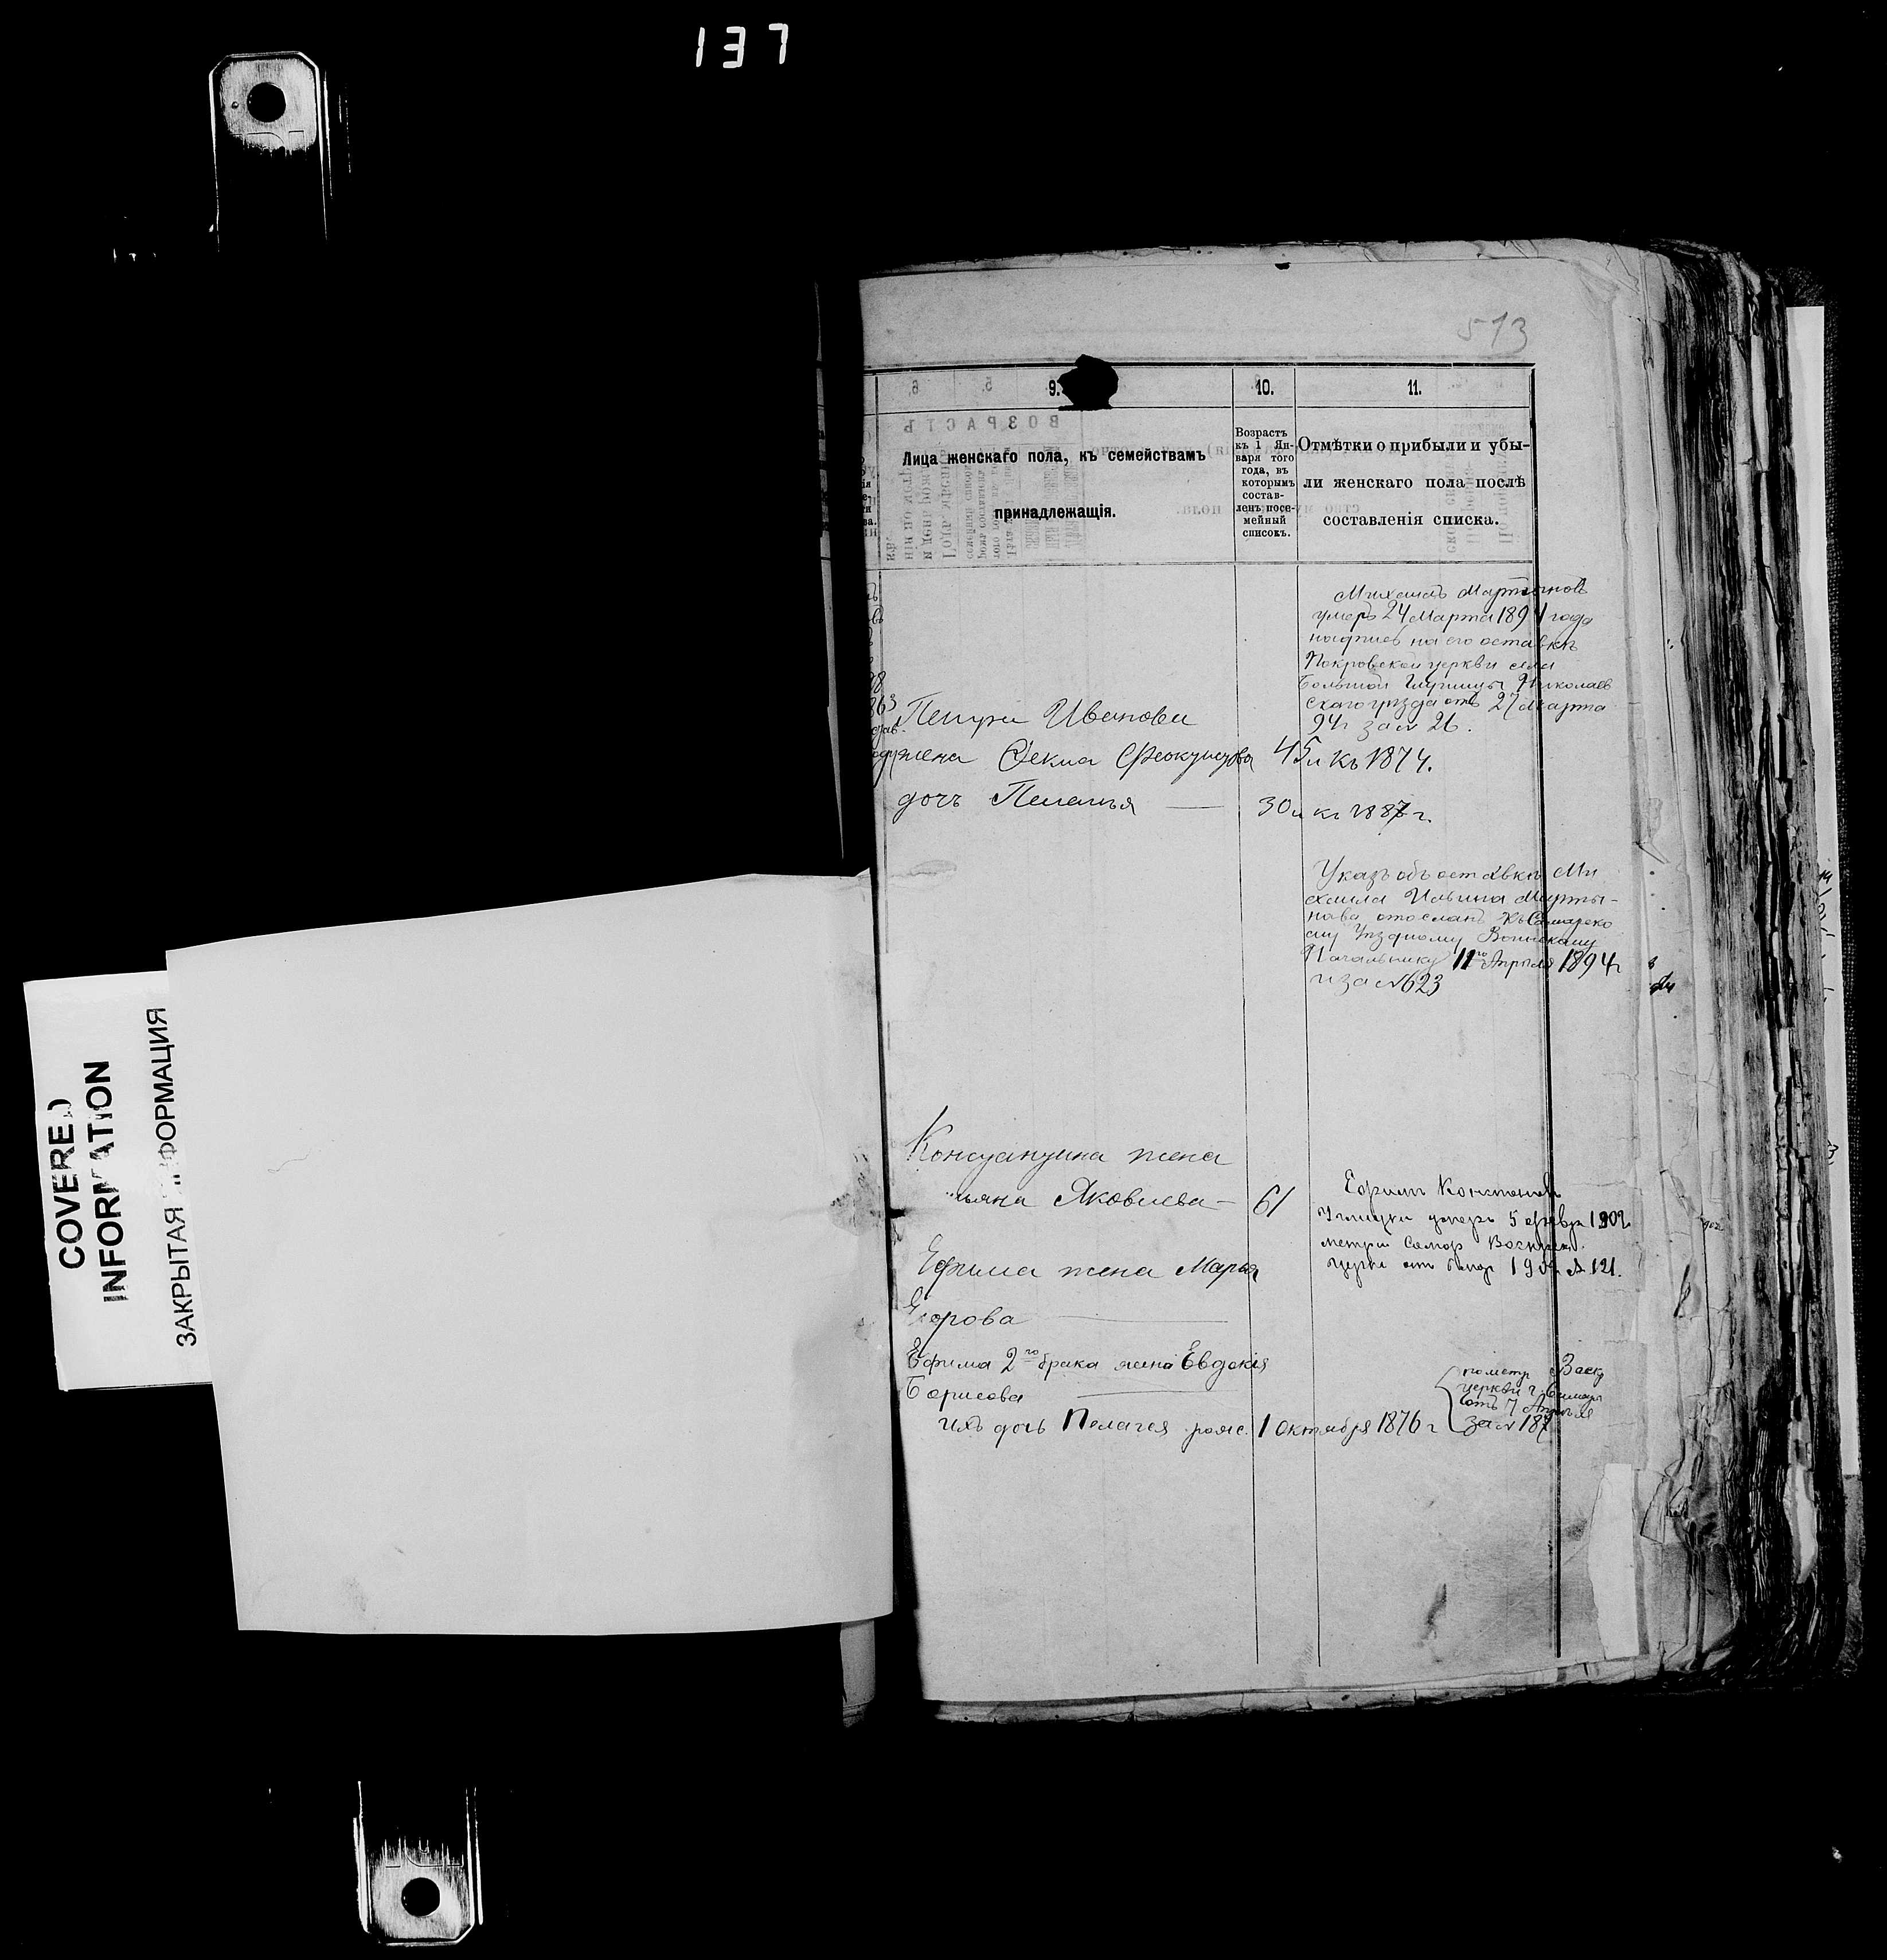 137
513
9.
10.
11.
Лица женскаго пола, къ семействамъ
принадлежащія.
Возрастъ
къ 1 Ян-
варя того
года, въ
которымъ
состав-
ленъ посе-
мейный
списокъ.
Отмѣтки о прибыли и убы-
ли женскаго пола послѣ
составленія списка.
Михаилъ Мартыновъ
умеръ 24 Марта 1894 года
надпись на его оставкѣ
Покровской церкви села
Большой Глушицы Николаев
скаго уѣзда отъ 27 марта
94г за № 26.
Петра Иванова
жена Фекла 45 л къ 1874.
дочь Пелагья — 30 л къ 1887 г.
Указъ объ оставкѣ Ми
хаила Ильина Марты-
нова отосланъ къ Самарско
му Уѣздному Воинскому
Начальнику 11го Апрѣля 1894 г
и за № 623
Константина жена
Яковлева — 61
Ефимъ
умеръ 5 1902
метри Самар
церкви от № 121.
Ефима жена Марья
Егорова
Ефима 2го брака жена Евдокія
Борисова
ихъ дочь Пелагея рожд. 1 Октября 1876 г
по метр Воскр
церкви г. Самары
отъ 7 Апрѣля
за № 187
COVERED
INFORMATION
ЗАКРЫТАЯ ИНФОРМАЦИЯ